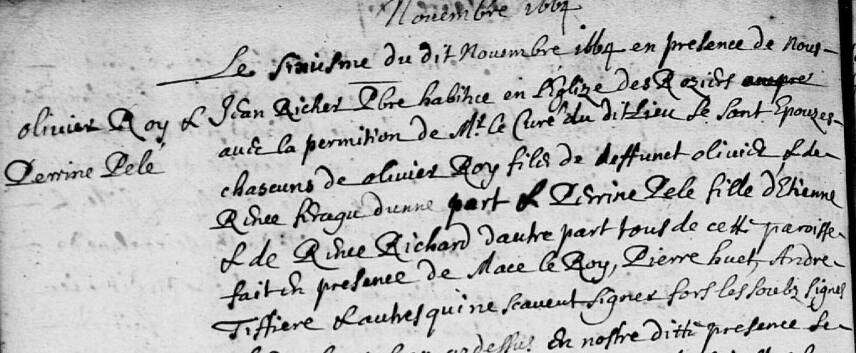 Novembre 1664
Le sixiesme du dit Novembre 1664 en presence de nous
Jean Richer Pbre habitué en l'Eglize des Roziers
olivier Roy &
Perrine Pelé
avec la permition de Mr. le Curé du dit Lieu Se Sont Epouzes
chascuns de olivier Roy filds de deffunct olivier & de
Renee d'une part & Perrine Pele fille d'Etienne
& de Renee Richard d'autre part tous de cette paroisse
fait en presence de Mace le Roy, Pierre huet, Andre
Tiffiere & autres qui ne scavent signer fors les soubz signes
en nostre ditte presence